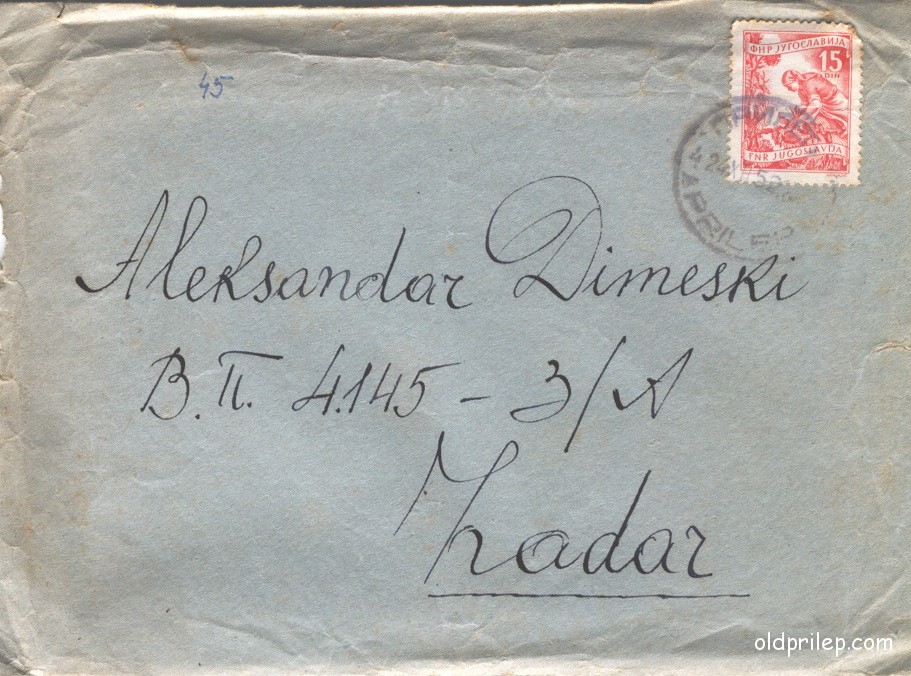 45
ФНР ЈУГОСЛАВИЈА
15
DIN
FNR JUGOSLAVIJA
PRILEP
Aleksandar Dimeski
В.П. 4.145 - 3/A
Zadar
oldprilep.com